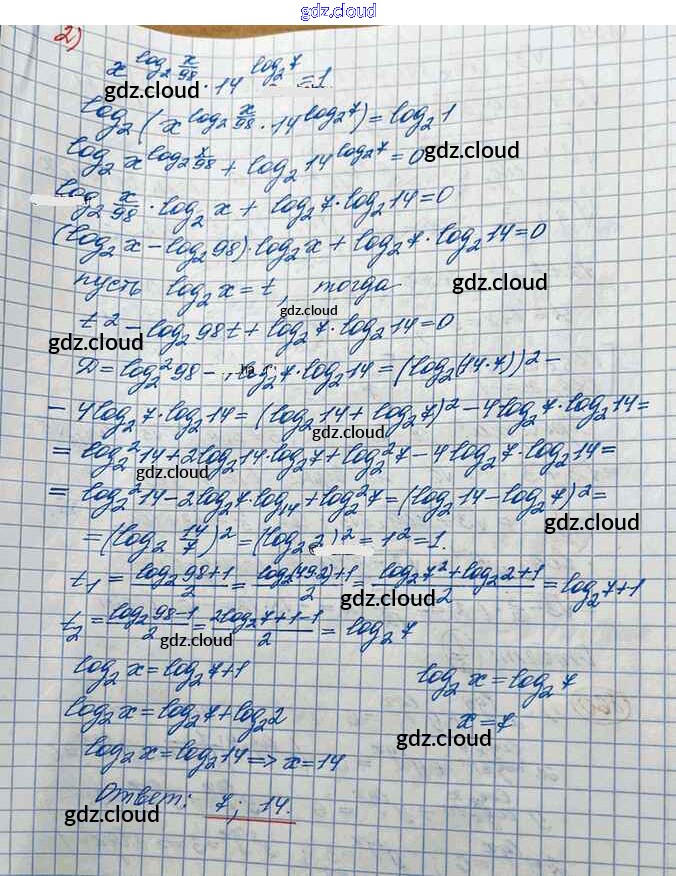 gdz.cloud
2)
x^(log₂ x/98) · 14^(log₂ 7) = 1
gdz.cloud
log₂ (x^(log₂ x/98) · 14^(log₂ 7)) = log₂ 1
gdz.cloud
log₂ x^(log₂ x/98) + log₂ 14^(log₂ 7) = 0
gdz.cloud
log₂ x/98 · log₂ x + log₂ 7 · log₂ 14 = 0
(log₂ x - log₂ 98) · log₂ x + log₂ 7 · log₂ 14 = 0
пусть log₂ x = t, тогда
gdz.cloud
gdz.cloud
t² - log₂ 98t + log₂ 7 · log₂ 14 = 0
gdz.cloud
D = log₂² 98 - log₂ 7 · log₂ 14 = (log₂ (14·7))² -
- 4log₂ 7 · log₂ 14 = (log₂ 14 + log₂ 7)² - 4log₂ 7 · log₂ 14 =
gdz.cloud
= log₂² 14 + 2log₂ 14 · log₂ 7 + log₂² 7 - 4log₂ 7 · log₂ 14 =
gdz.cloud
= log₂² 14 - 2log₂ 7 · log₁₄ + log₂² 7 = (log₂ 14 - log₂ 7)² =
gdz.cloud
= (log₂ 14/7)² = (log₂ 2)² = 1² = 1.
t₁ = (log₂ 98+1)/2 = (log₂(49·2)+1)/2 = (log₂ 7² + log₂ 2+1)/2 = log₂ 7+1
gdz.cloud
t₂ = (log₂ 98-1)/2 = (2log₂ 7+1-1)/2 = log₂ 7
gdz.cloud
log₂ x = log₂ 7+1
log₂ x = log₂ 7 + log₂ 2
log₂ x = log₂ 14 => x = 14
log₂ x = log₂ 7
x = 7
gdz.cloud
Ответ: 7; 14.
gdz.cloud